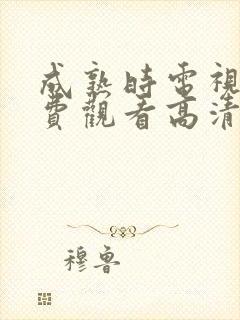 成熟時電視
費觀看高清
穆魯